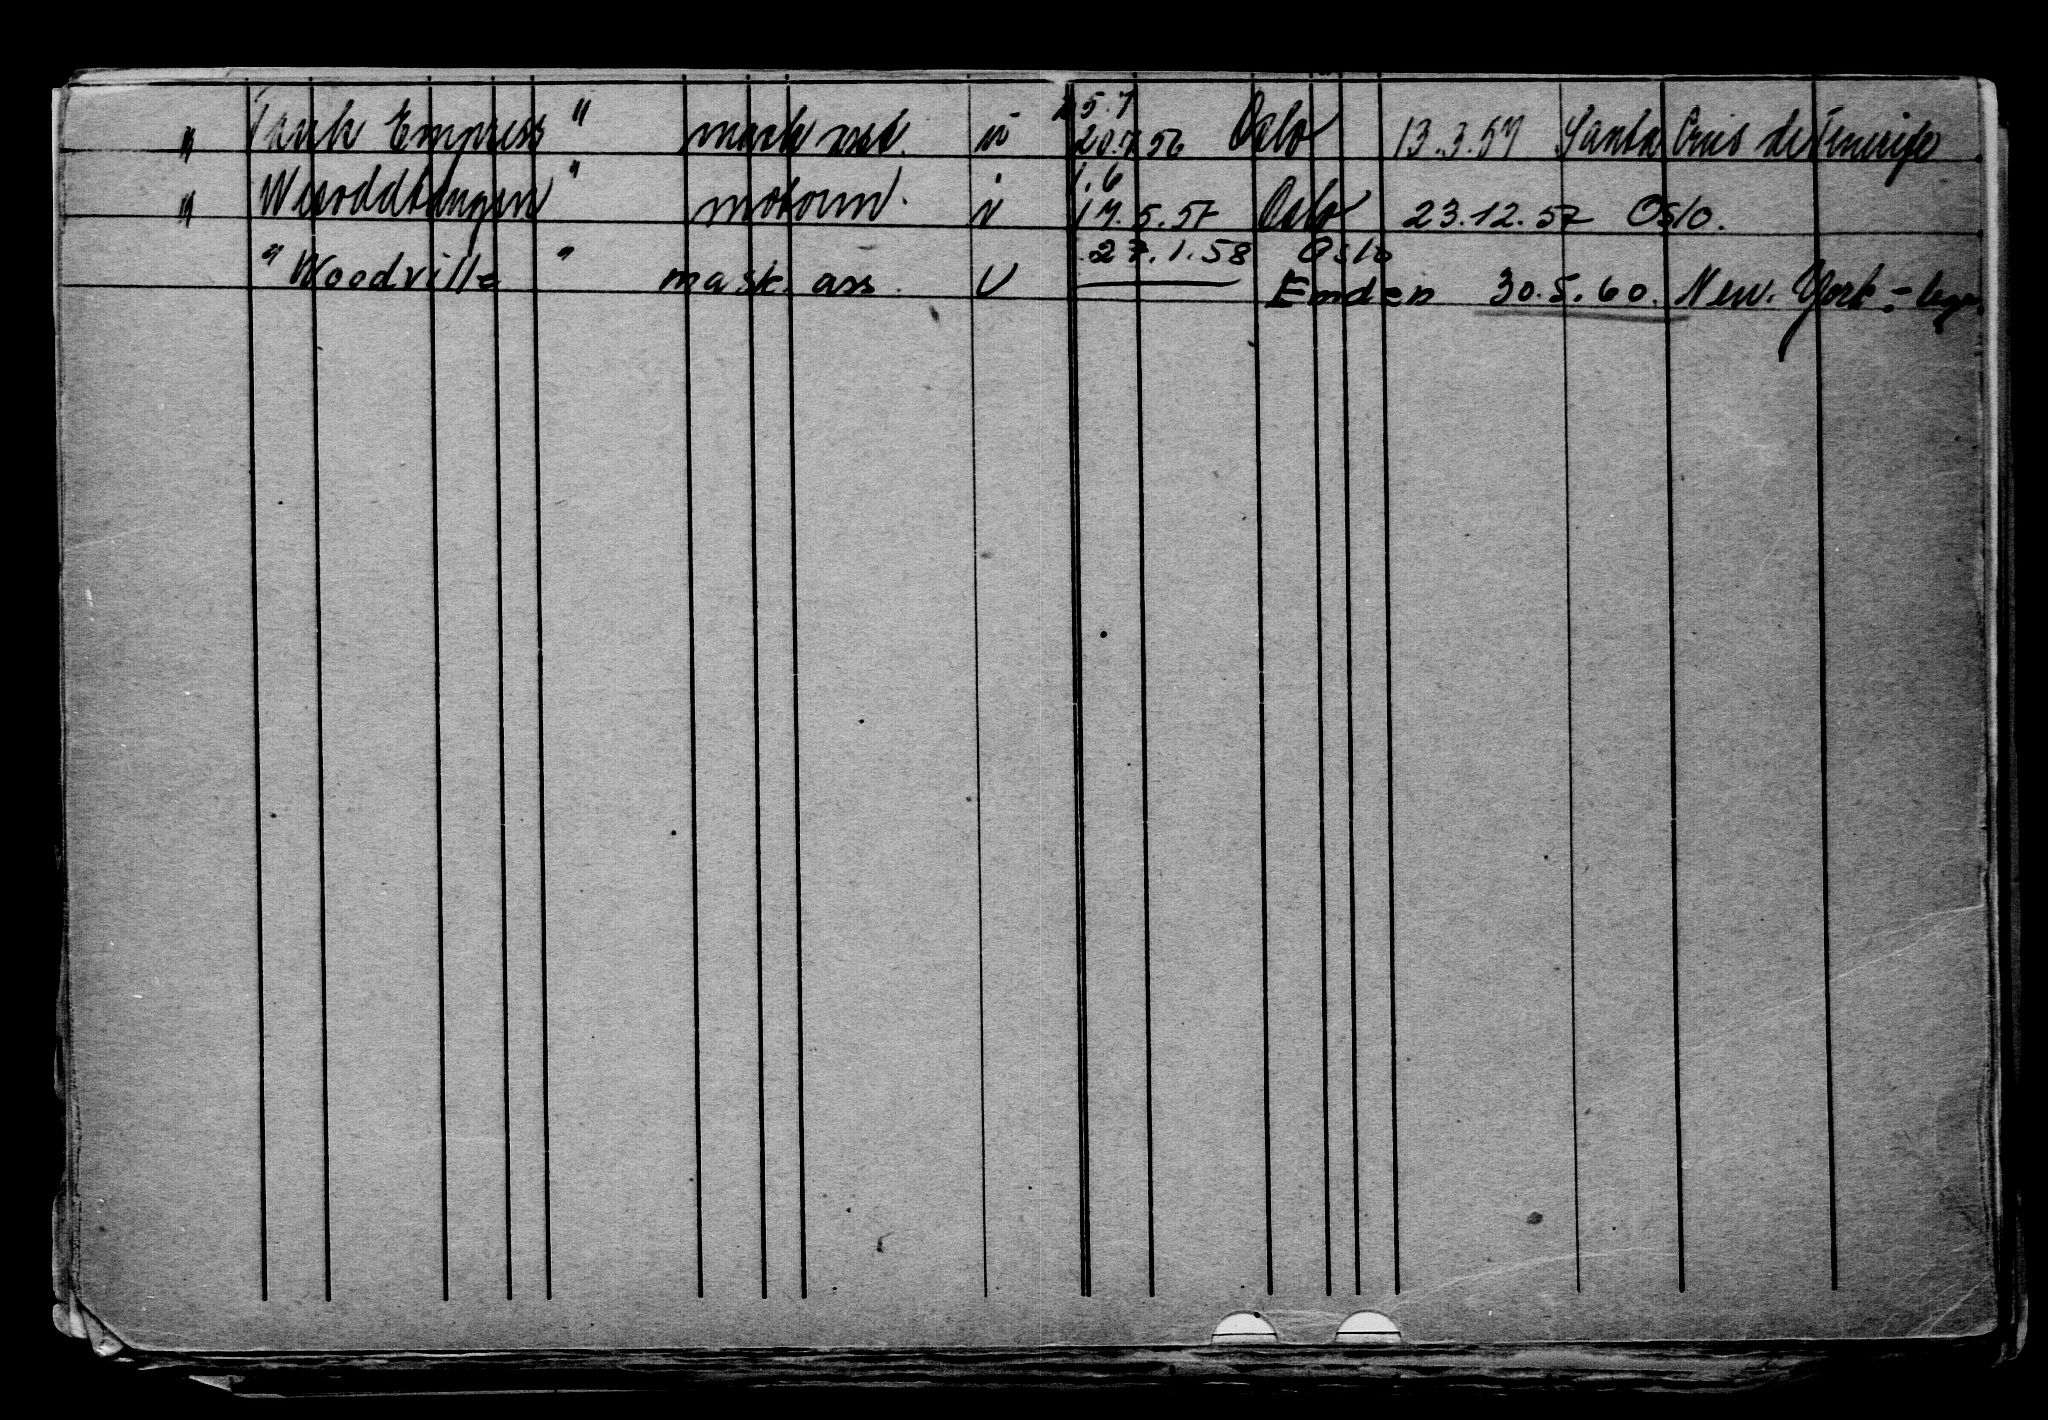 25.7
" Tank Empress " mask ass. u 20.7.56 Oslo 13.3.57 Santa Cruis de Tenerife
1.6
" " motorm. u 17.5.57 Oslo 23.12.57 Oslo.
27.1.58 Oslo
" Woodville " mask. ass. U Emden 30.5.60. New. York. -